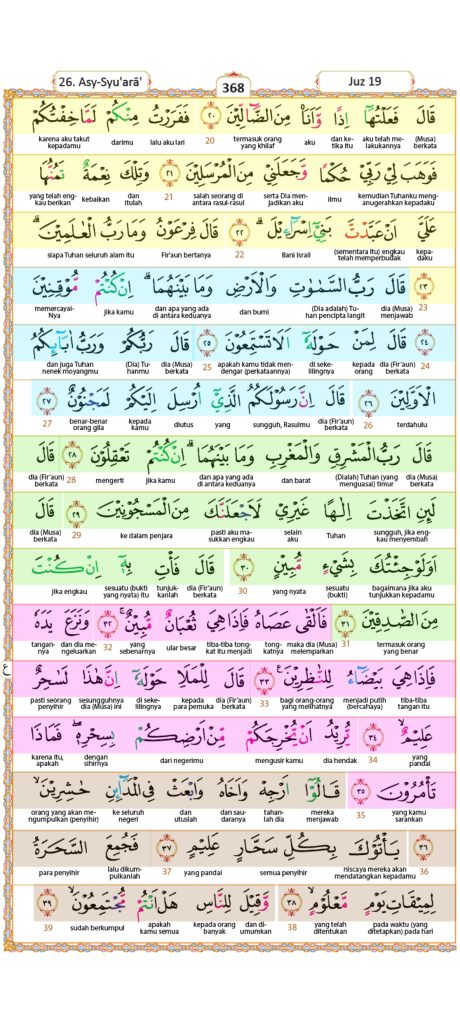 26. Asy-Syu'arā'
368
Juz 19
قَالَ فَعَلْتُهَآ اِذًا وَّاَنَا۠ مِنَ الضَّاۤلِّيْنَ ۗ ٢٠ فَفَرَرْتُ مِنْكُمْ لَمَّا خِفْتُكُمْ
(Musa) berkata aku telah me-lakukannya dan ke-tika itu aku termasuk orang yang khilaf 20 lalu aku lari darimu karena aku takut kepadamu
فَوَهَبَ لِيْ رَبِّيْ حُكْمًا وَّجَعَلَنِيْ مِنَ الْمُرْسَلِيْنَ ٢١ وَتِلْكَ نِعْمَةٌ تَمُنُّهَا
kemudian Tuhanku meng-anugerahkan kepadaku ilmu serta Dia men-jadikan aku salah seorang di antara rasul-rasul 21 dan itulah kebaikan yang telah eng-kau berikan
عَلَيَّ اَنْ عَبَّدْتَّ بَنِيْٓ اِسْرَاۤءِيْلَ ۗ ٢٢ قَالَ فِرْعَوْنُ وَمَا رَبُّ الْعٰلَمِيْنَ ۗ
kepa-daku (sementara itu) engkau telah memperbudak Bani Israil 22 Fir'aun bertanya siapa Tuhan seluruh alam itu
٢٣ قَالَ رَبُّ السَّمٰوٰتِ وَالْاَرْضِ وَمَا بَيْنَهُمَا ۗ اِنْ كُنْتُمْ مُّوْقِنِيْنَ
23 dia (Musa) menjawab (Dia adalah) Tu-han pencipta langit dan bumi dan apa yang ada di antara keduanya jika kamu memercayai-Nya
٢٤ قَالَ لِمَنْ حَوْلَهٗٓ اَلَا تَسْتَمِعُوْنَ ٢٥ قَالَ رَبُّكُمْ وَرَبُّ اٰبَاۤىِٕكُمُ
24 dia (Fir'aun) berkata kepada orang di seke-lilingnya apakah kamu tidak men-dengar (perkataannya) 25 dia (Musa) berkata (Dia) Tu-hanmu dan juga Tuhan nenek moyangmu
الْاَوَّلِيْنَ ٢٦ قَالَ اِنَّ رَسُوْلَكُمُ الَّذِيْٓ اُرْسِلَ اِلَيْكُمْ لَمَجْنُوْنٌ ٢٧
terdahulu 26 dia (Fir'aun) berkata sungguh, Rasulmu yang diutus kepada kamu benar-benar orang gila 27
قَالَ رَبُّ الْمَشْرِقِ وَالْمَغْرِبِ وَمَا بَيْنَهُمَا ۗ اِنْ كُنْتُمْ تَعْقِلُوْنَ ٢٨ قَالَ
dia (Musa) berkata (Dialah) Tuhan (yang menguasai) timur dan barat dan apa yang ada di antara keduanya jika kamu mengerti 28 dia (Fir'aun) berkata
لَىِٕنِ اتَّخَذْتَ اِلٰهًا غَيْرِيْ لَاَجْعَلَنَّكَ مِنَ الْمَسْجُوْنِيْنَ ٢٩ قَالَ
sungguh, jika eng-kau menyembah Tuhan selain aku pasti aku ma-sukkan engkau ke dalam penjara 29 dia (Musa) berkata
اَوَلَوْ جِئْتُكَ بِشَيْءٍ مُّبِيْنٍ ٣٠ قَالَ فَأْتِ بِهٖٓ اِنْ كُنْتَ
bagaimana jika aku tunjukkan kepadamu sesuatu (bukti) yang nyata 30 dia (Fir'aun) berkata tunjuk-kanlah sesuatu (bukti yang nyata) itu jika engkau
مِنَ الصّٰدِقِيْنَ ٣١ فَاَلْقٰى عَصَاهُ فَاِذَا هِيَ ثُعْبَانٌ مُّبِيْنٌ ۚ ٣٢ وَنَزَعَ يَدَهٗ
termasuk orang yang benar 31 maka dia (Musa) melemparkan tong-katnya tiba-tiba tong-kat itu menjadi ular besar yang sebenarnya 32 dan dia me-ngeluarkan tangan-nya
ع
فَاِذَا هِيَ بَيْضَاۤءُ لِلنّٰظِرِيْنَ ࣖ ٣٣ قَالَ لِلْمَلَاِ حَوْلَهٗٓ اِنَّ هٰذَا لَسٰحِرٌ
tiba-tiba tangan itu menjadi putih (bercahaya) bagi orang-orang yang melihatnya 33 dia (Fir'aun) berkata kepada para pemuka di seke-lilingnya sesungguhnya dia (Musa) ini pasti seorang penyihir
عَلِيْمٌ ۙ ٣٤ يُّرِيْدُ اَنْ يُّخْرِجَكُمْ مِّنْ اَرْضِكُمْ بِسِحْرِهٖۖ فَمَاذَا
yang pandai 34 dia hendak mengusir kamu dari negerimu dengan sihirnya karena itu, apakah
تَأْمُرُوْنَ ٣٥ قَالُوْٓا اَرْجِهْ وَاَخَاهُ وَابْعَثْ فِى الْمَدَاۤىِٕنِ حٰشِرِيْنَ ۙ
yang kamu sarankan 35 mereka menjawab tahan-lah dia dan sau-daranya dan utuslah ke seluruh negeri orang yang akan me-ngumpulkan (penyihir)
٣٦ يَأْتُوْكَ بِكُلِّ سَحَّارٍ عَلِيْمٍ ٣٧ فَجُمِعَ السَّحَرَةُ
36 niscaya mereka akan mendatangkan kepadamu semua penyihir yang pandai 37 lalu dikum-pulkanlah para penyihir
لِمِيْقَاتِ يَوْمٍ مَّعْلُوْمٍ ۙ ٣٨ وَّقِيْلَ لِلنَّاسِ هَلْ اَنْتُمْ مُّجْتَمِعُوْنَ ۙ ٣٩
pada waktu (yang ditetapkan) pada hari yang telah ditentukan 38 dan di-umumkan kepada orang banyak apakah kamu semua sudah berkumpul 39